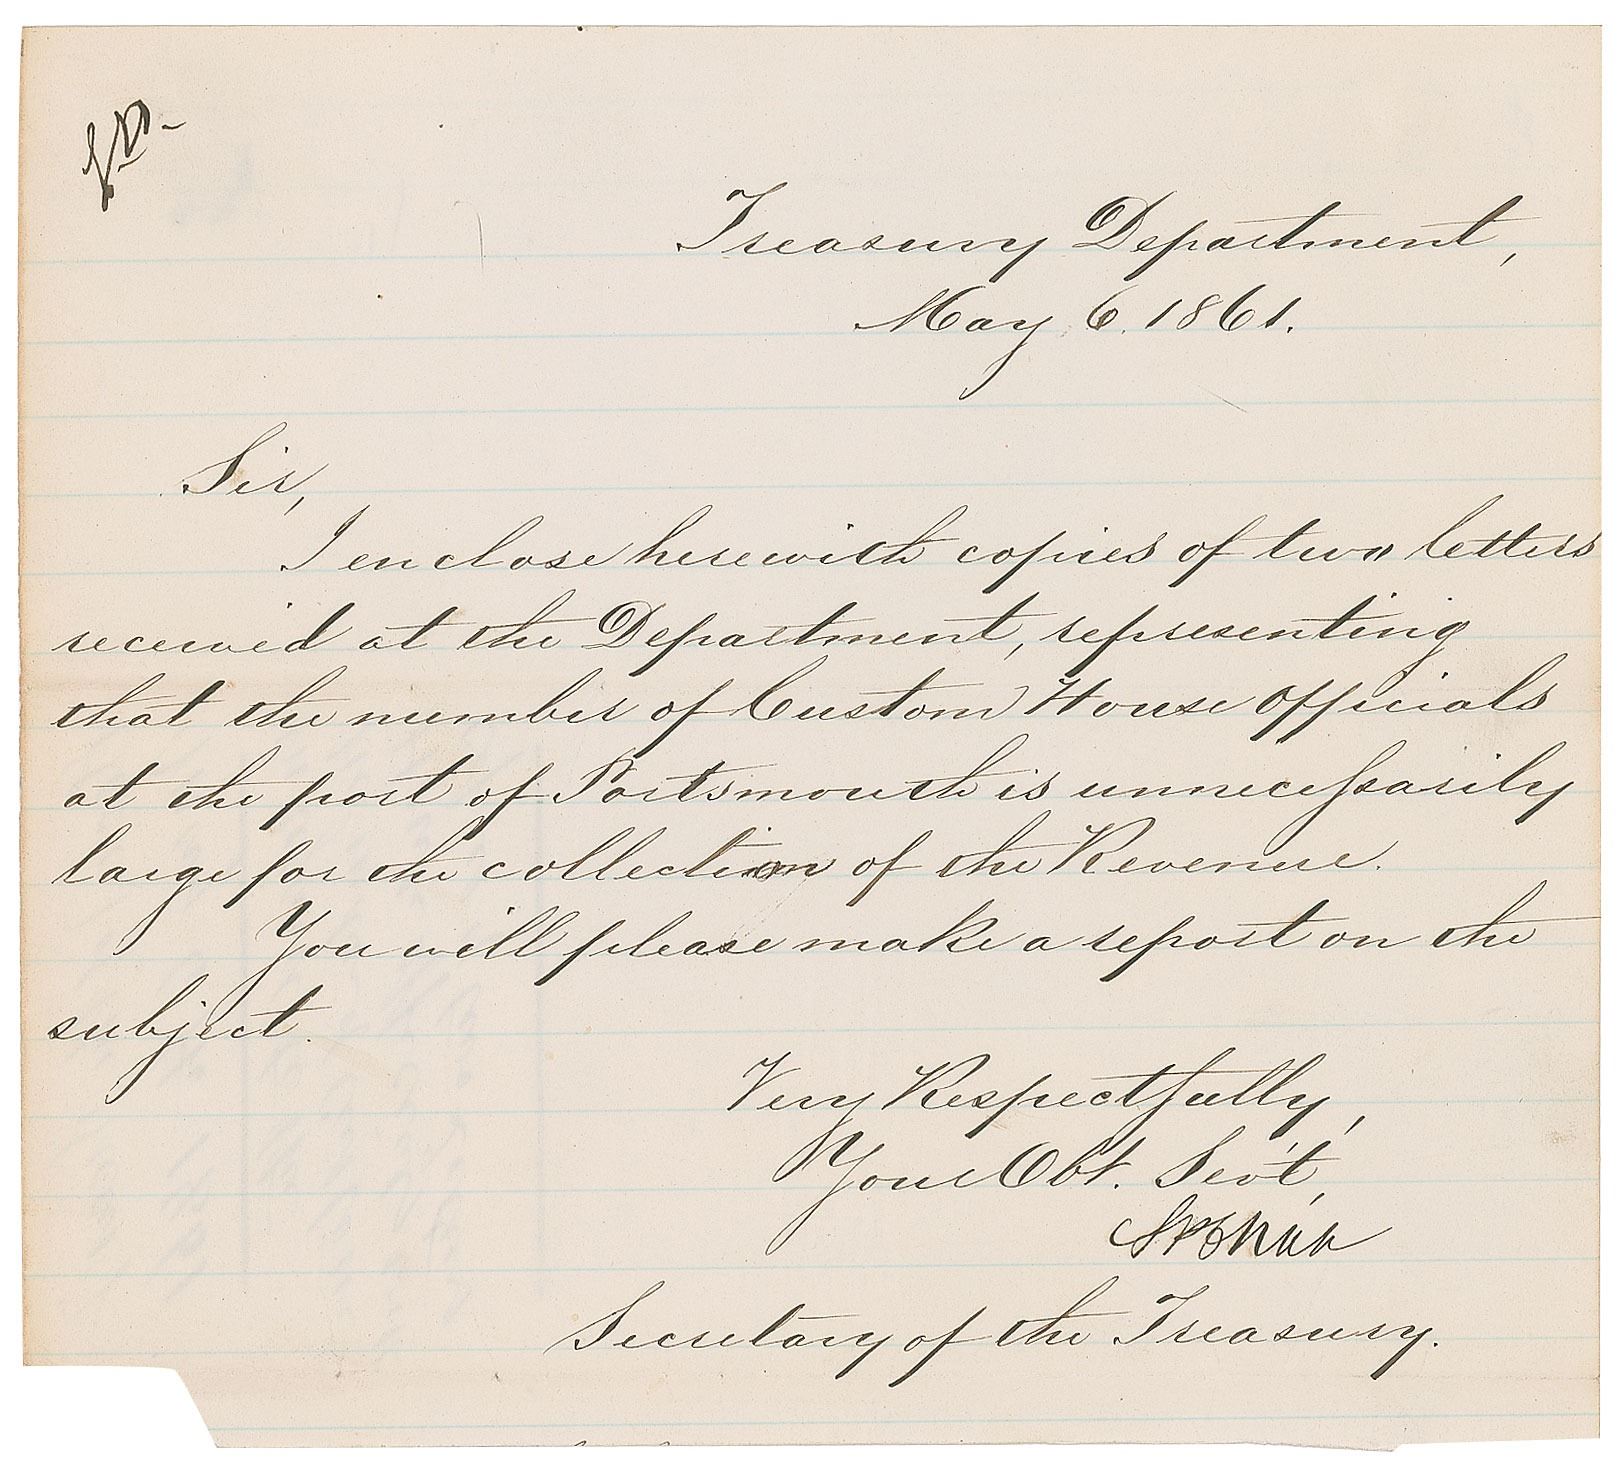 Treasury Department,
May 6. 1861.
Sir,
I enclose herewith copies of two letters
received at the Department, representing
that the number of Custom House Officials
at the port of Portsmouth is unnecessarily
large for the collection of the Revenue.
You will please make a report on the
subject.
Very Respectfully,
Your Obt. Serv't,
SPChase
Secretary of the Treasury.